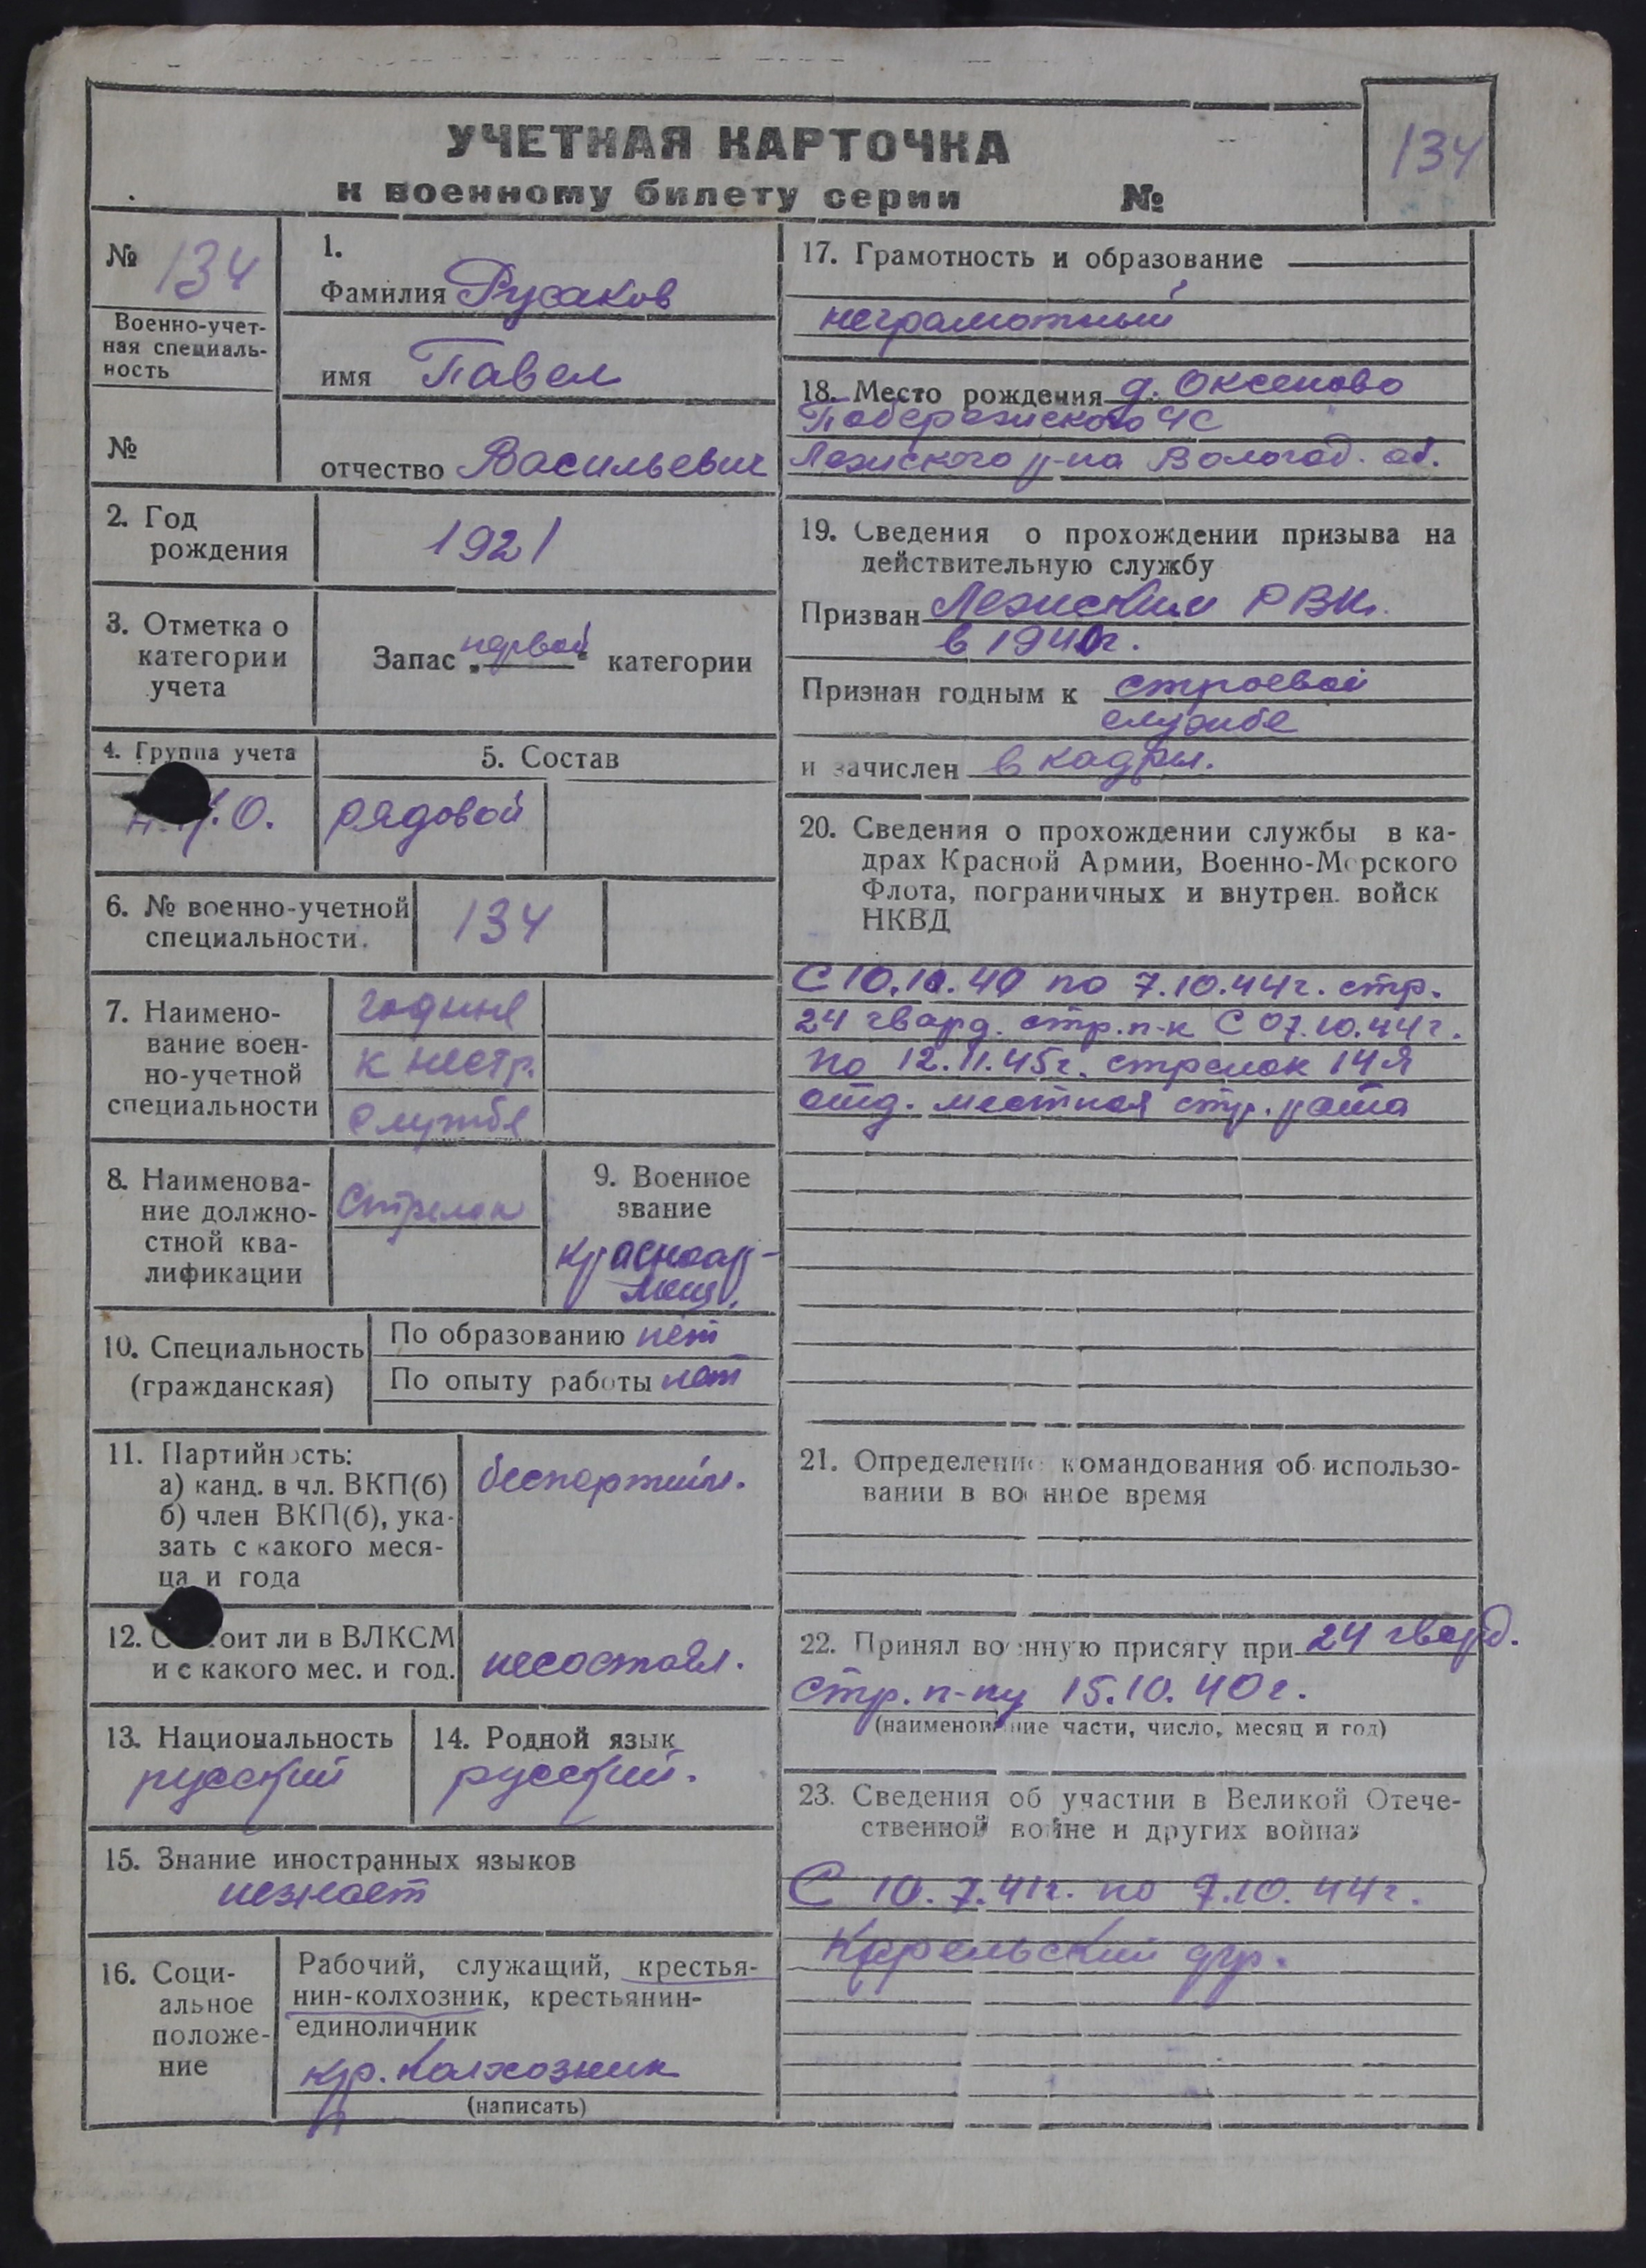 УЧЕТНАЯ КАРТОЧКА
к военному билету серии №
134
№ 134
Военно-учет-
ная специаль-
ность
№
1.
Фамилия Русаков
имя Павел
отчество Васильевич
2. Год
рождения
1921
3. Отметка о
категории
учета
Запас „первой“ категории
4. Группа учета
О.
5. Состав
рядовой
6. № военно-учетной
специальности.
134
7. Наимено-
вание воен-
но-учетной
специальности
годные
к нестр.
службе
8. Наименова-
ние должно-
стной ква-
лификации
Стрелок
9. Военное
звание
красноар-
меец.
10. Специальность
(гражданская)
По образованию нет
По опыту работы нет
11. Партийность:
а) канд. в чл. ВКП(б)
б) член ВКП(б), ука-
зать с какого меся-
ца и года
беспартийн.
12. Состоит ли в ВЛКСМ
и с какого мес. и год.
несостоял.
13. Национальность
русский
14. Родной язык
русский.
15. Знание иностранных языков
незнает
16. Соци-
альное
положе-
ние
Рабочий, служащий, крестья-
нин-колхозник, крестьянин-
единоличник
кр. колхозник
(написать)
17. Грамотность и образование
неграмотный
18. Место рождения д. Оксеново
Побережского ЧС
Лежского р-на Вологод. об.
19. Сведения о прохождении призыва на
действительную службу
Призван Лежским РВК.
в 1940г.
Признан годным к строевой
службе
и зачислен в кадры.
20. Сведения о прохождении службы в ка-
драх Красной Армии, Военно-Морского
Флота, пограничных и внутрен. войск
НКВД
С 10.10.40 по 7.10.44г. стр.
24 гвард. стр. п-к С 07.10.44г.
по 12.11.45г. стрелок 14я
отд. местная стр. рота
21. Определение командования об использо-
вании в военное время
22. Принял военную присягу при 24 гвард.
стр. п-ку 15.10.40г.
(наименование части, число, месяц и год)
23. Сведения об участии в Великой Отече-
ственной войне и других войнах
С 10.7.41г. по 7.10.44г.
Карельский фр.